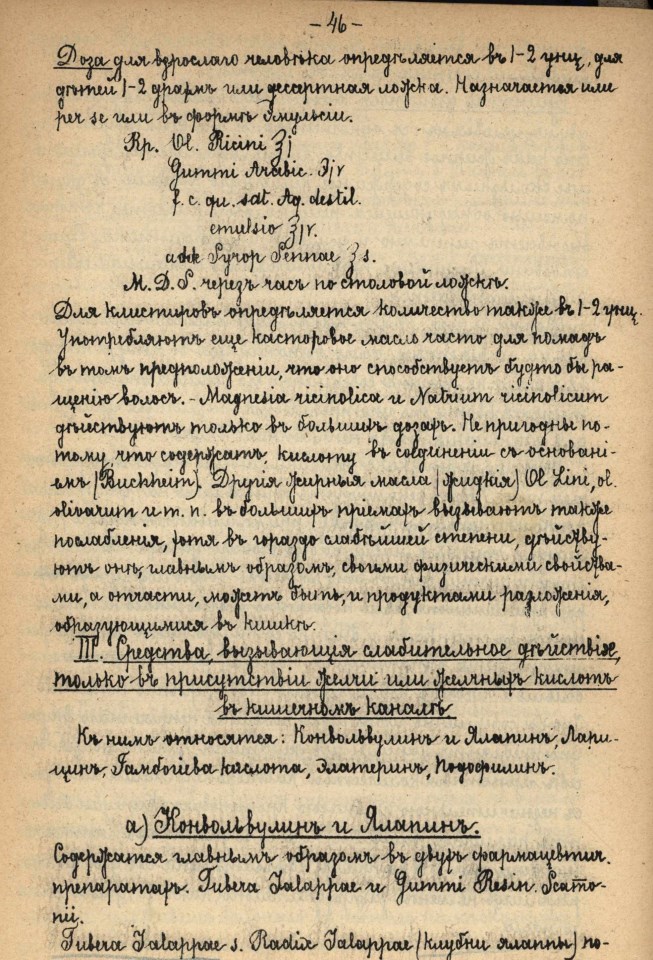 - 46 -
Доза для взрослаго человѣка опредѣляется въ 1-2 унц, для
дѣтей 1-2 драхм или дессертная ложка. Назначается или
per se или въ формѣ Эмульсіи.
Rp. Ol. Ricini ʒj
Gummi Arabic. ʒjv
f. c. qu. sat. Aq. destil.
emulsio ʒjv.
adde Syrop Sennae ʒ s.
M. D. S. черезъ часъ по столовой ложкѣ.
Для клистировъ опредѣляется количество также въ 1-2 унц.
Употребляютъ еще касторовое масло часто для помадъ
въ томъ предположеніи, что оно способствуетъ будто бы ра-
щенію волосъ. - Magnesia ricinolica и Natrium ricinolicum
дѣйствуютъ только въ большихъ дозахъ. Не пригодны по-
тому, что содержатъ, кислоту въ соединеніи съ основані-
емъ (Buchheim). Другія жирныя масла (жидкія) Ol Lini, ol.
olivarum и т. п. въ большихъ пріемахъ вызываютъ также
послабленія, хотя въ гораздо слабѣйшей степени, дѣйству-
ютъ онѣ, главнымъ образомъ, своими физическими свойства-
ми, а отчасти, можетъ быть, и продуктами разложенія,
образующимися въ кишкѣ.
III. Средства, вызывающія слабительное дѣйствіе,
только въ присутствіи желчи или желчныхъ кислотъ
въ кишечномъ каналѣ
Къ нимъ относятся: Конвольвулинъ и Ялапинъ, Лари-
цинъ, Гамбогіева кислота, Элатеринъ, Подофилинъ.
а) Конвольвулинъ и Ялапинъ.
Содержатся главнымъ образомъ въ двухъ фармацевтич.
препаратахъ. Tubera Jalappae и Gummi Resin. Scamo-
nii.
Tubera Jalappae s. Radix Jalappae (клубни ялаппы) по-